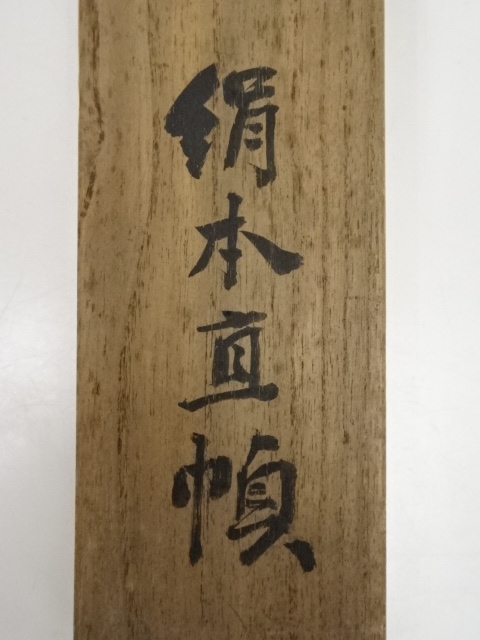 絹本直幀